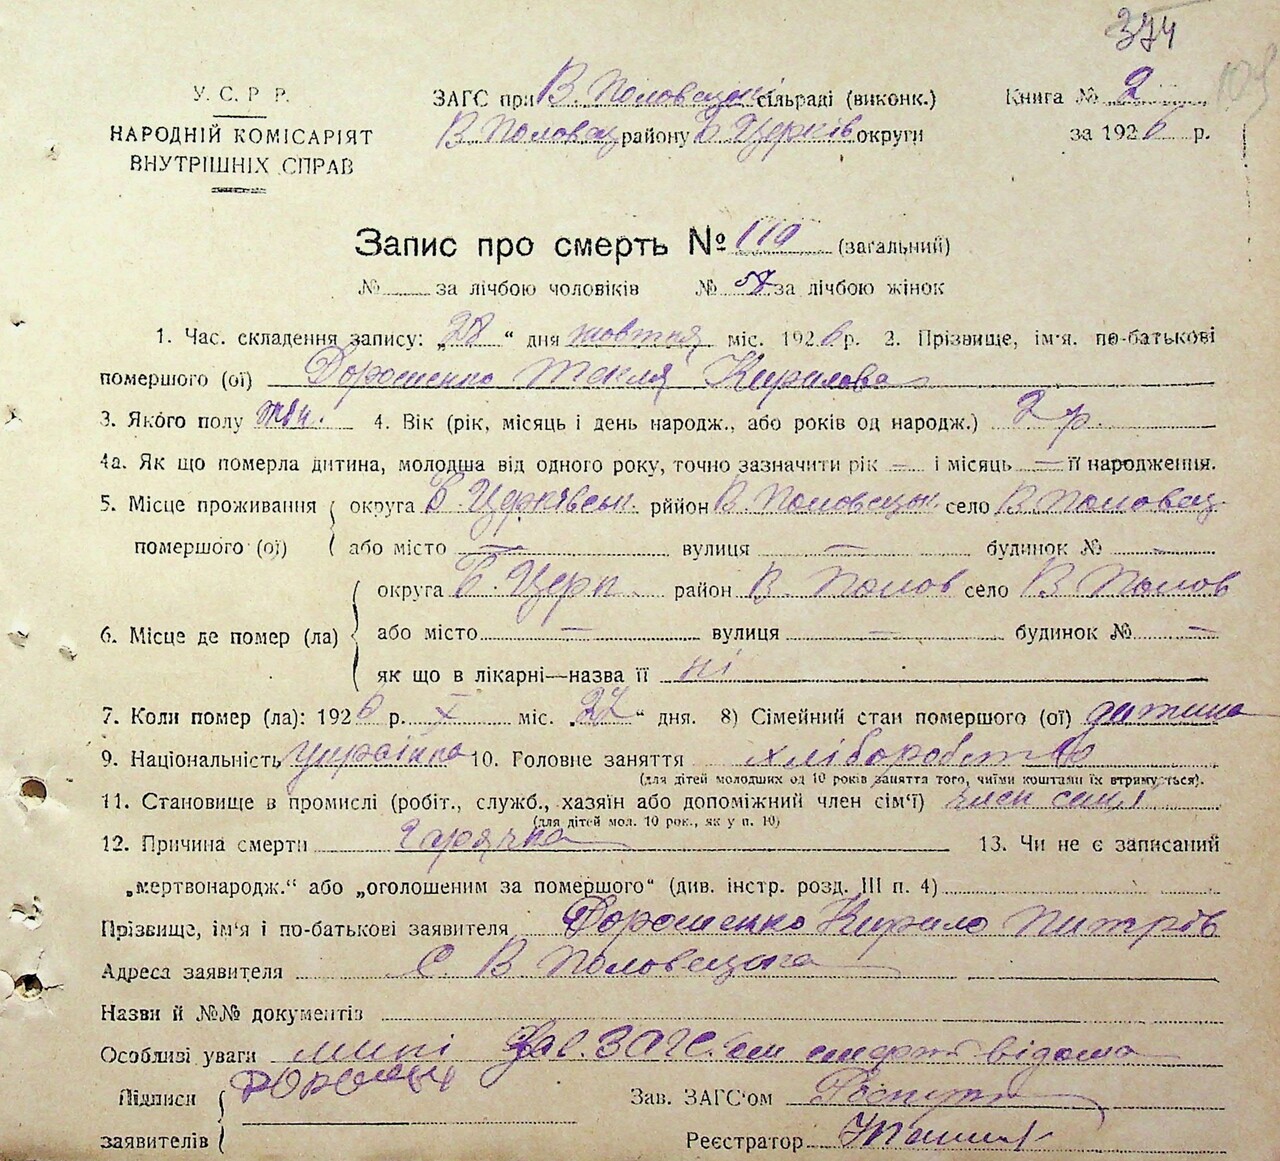 374
У. С. Р Р.
НАРОДНІЙ КОМІСАРІЯТ
ВНУТРІШНІХ СПРАВ
ЗАГС при В. Половецьк сільраді (виконк.)
В. Половец району Б. Церків округи
Книга № 2
за 1926 р.
109
Запис про смерть № 110 (загальний)
№ за лічбою чоловіків № 58 за лічбою жінок
1. Час. складення запису: „28“ дня жовтня міс. 1926 р. 2. Прізвище, ім'я. по-батькові
помершого (ої) Дорошенко Текля Кирилова
3. Якого полу жін. 4. Вік (рік, місяць і день народж., або років од народж.) 2 р.
4а. Як що померла дитина, молодша від одного року, точно зазначити рік — і місяць — її народження.
5. Місце проживання помершого (ої) округа Б. Церківськ. рййон В. Половецьк. село В. Половец.
або місто — вулиця — будинок № —
6. Місце де помер (ла) округа Б. Церк. район В. Полов село В Полов
або місто — вулиця — будинок № —
як що в лікарні—назва її ні
7. Коли помер (ла): 1926 р. X міс. „27“ дня. 8) Сімейний стан помершого (ої) дитина
9. Національність українка 10. Головне заняття хліборобство
(для дітей молодших од 10 років заняття того, чиїми коштами їх втримується).
11. Становище в промислі (робіт., служб., хазяїн або допоміжний член сім'ї) член сімї
(для дітей мол. 10 рок., як у п. 10)
12. Причина смерти гарячка 13. Чи не є записаний
„мертвонародж.“ або „оголошеним за помершого“ (див. інстр. розд. III п. 4)
Прізвище, ім'я і по-батькові заявителя Дорошенко Кирило Питрів
Адреса заявителя с. В Половецька
Назви й №№ документів
Особливі уваги мині Зав. ЗАГС. ом смерть відома
Підписи заявителів
Зав. ЗАГС'ом
Реєстратор